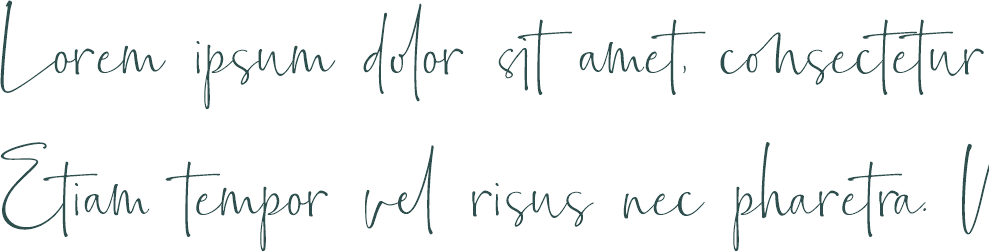 Lorem ipsum dolor sit amet, consectetur
Etiam tempor vel risus nec pharetra. V